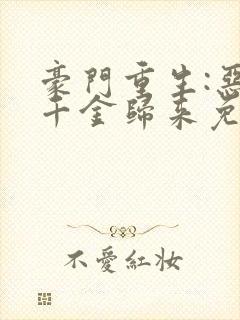 豪門重生:惡
千金歸來免
不愛紅妝